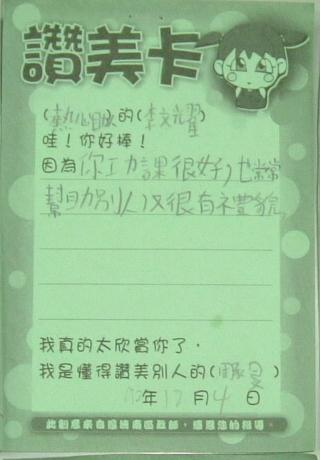 讚美卡
(熱心服的(李文耀)
哇！你好棒！
因為你功課很好，也常常
幫助別人又很有禮貌
我真的太欣當你了，
我是懂得讚美別人的( )
年12月4日